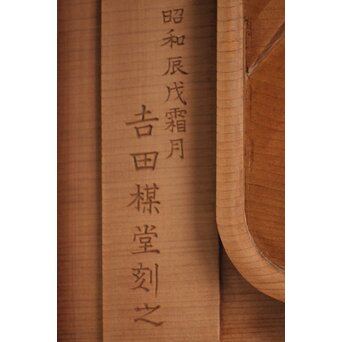 昭和辰戊霜月
吉田楳堂刻之